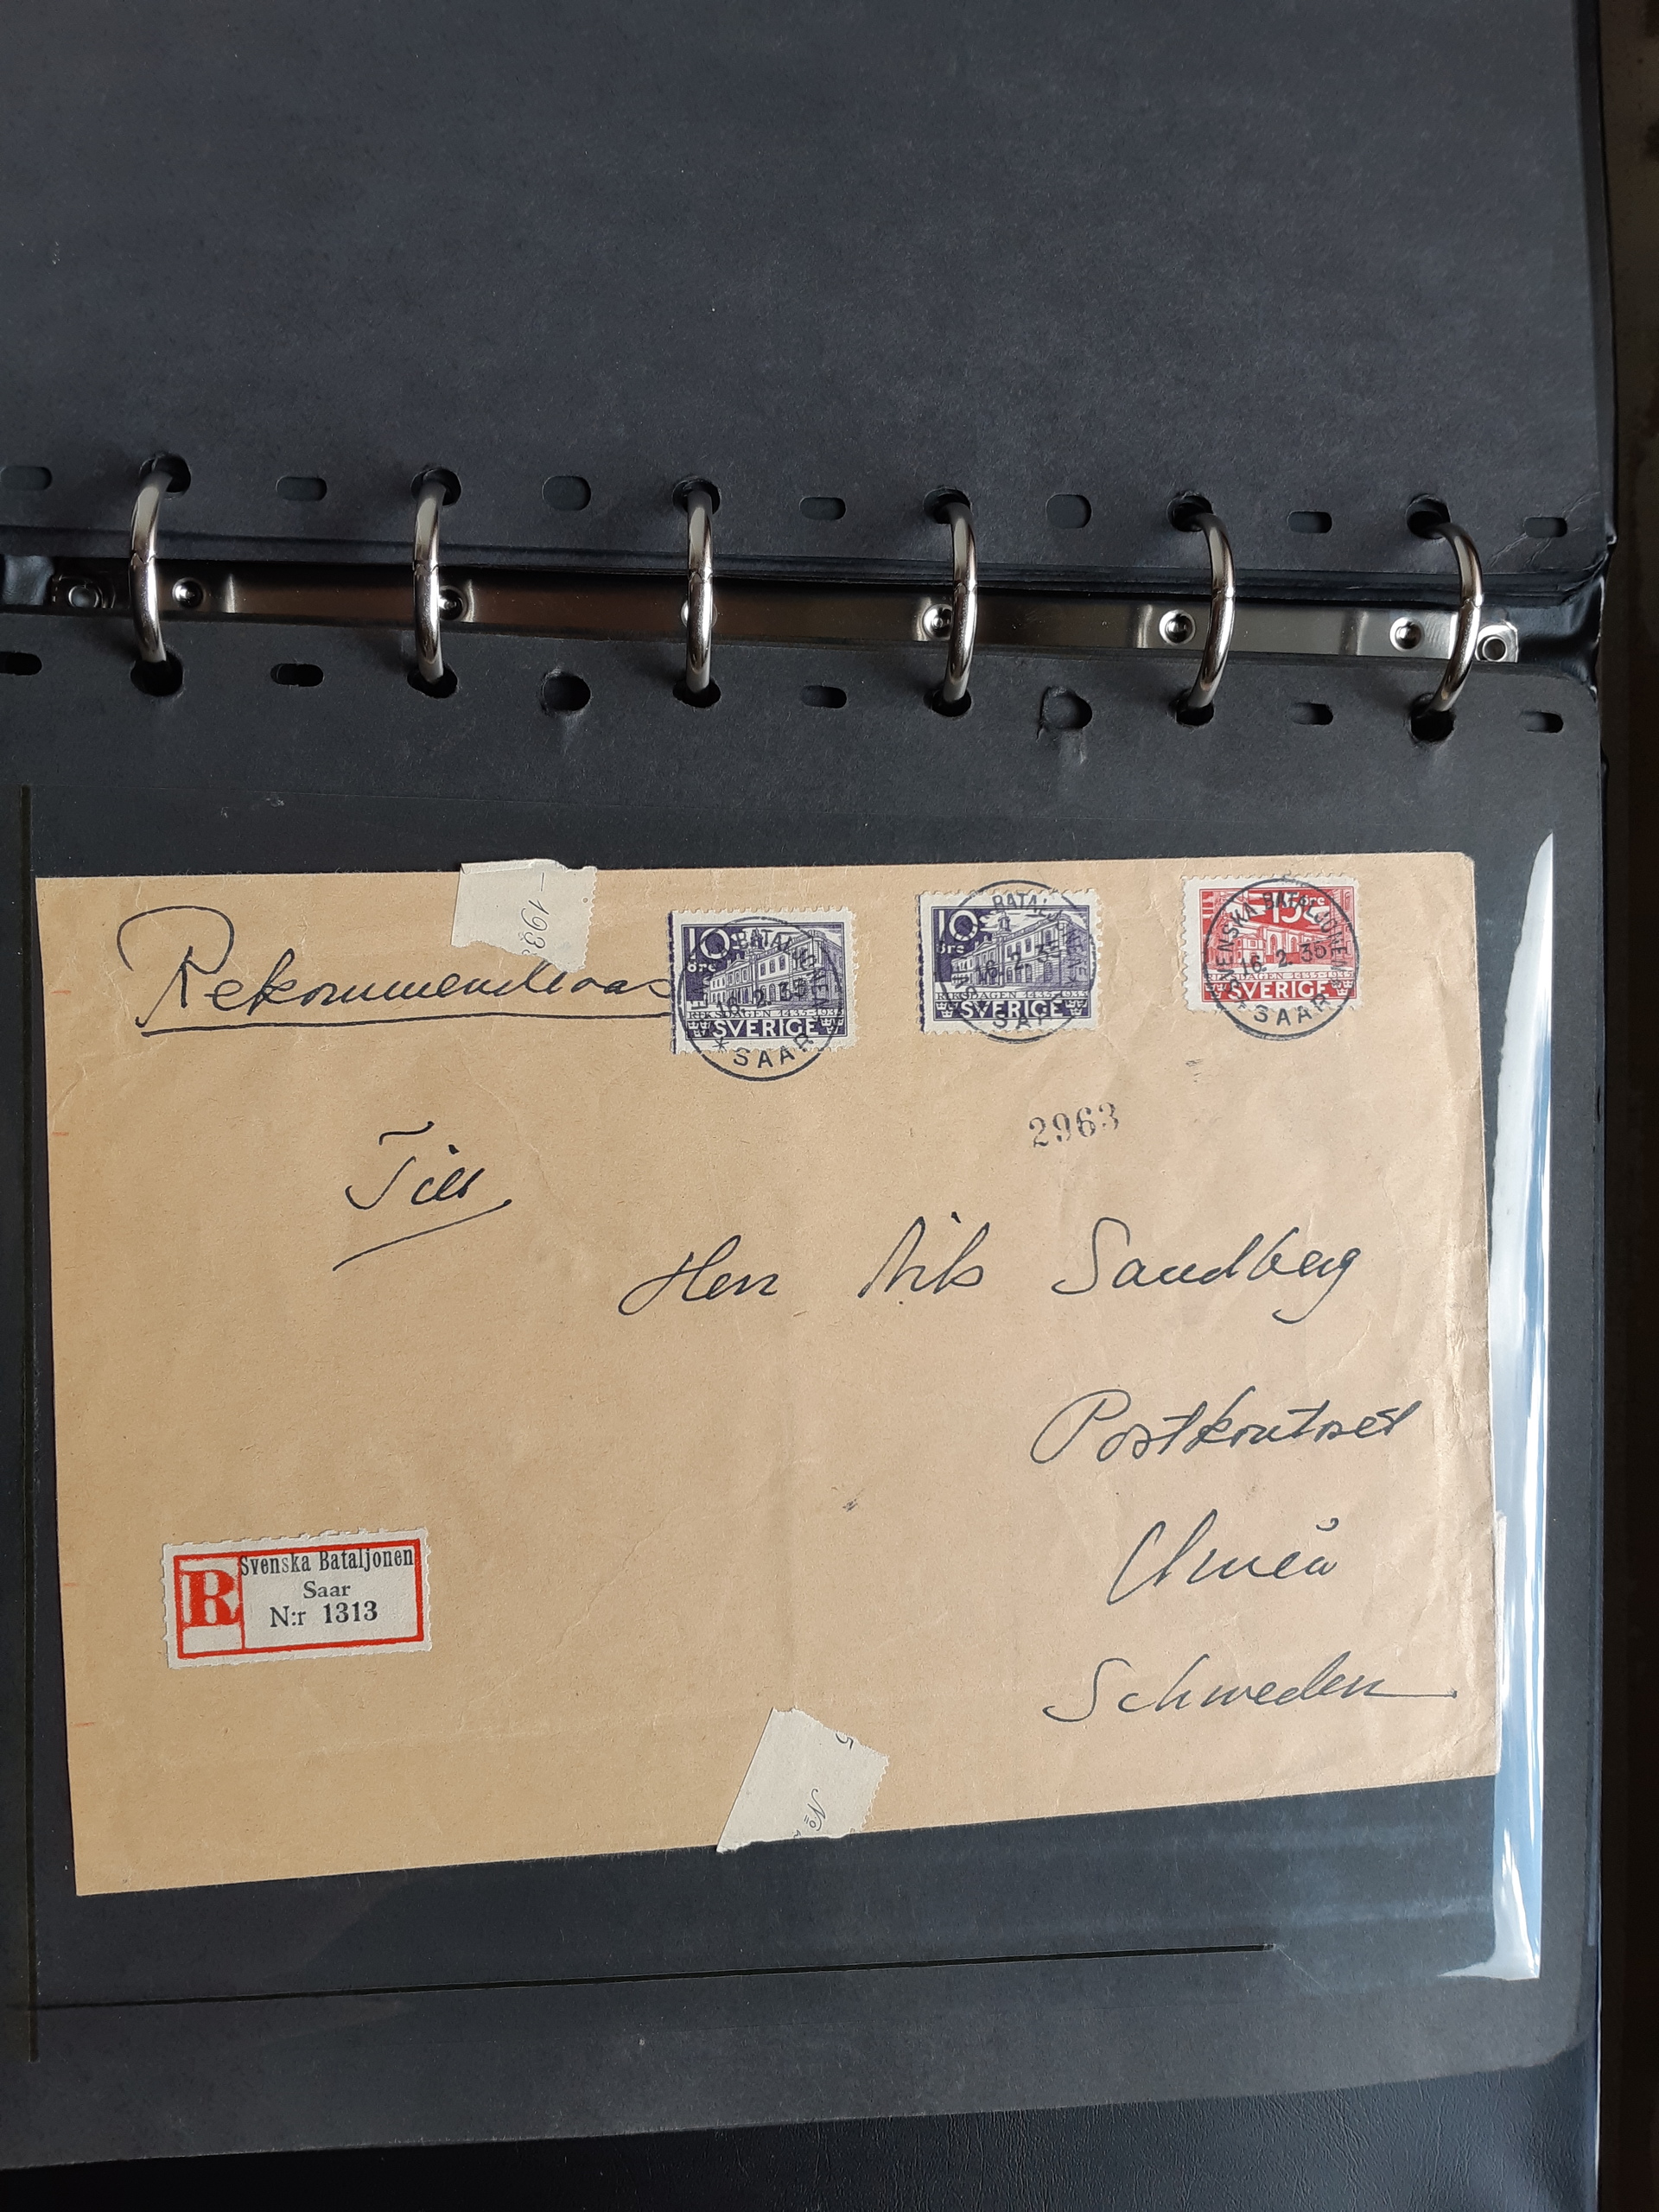 - 193
Rekommenderas
10
öre
RIKSDAGEN 1435-1935
SVERIGE
BATALJONEN
16. 2. 35
* SAAR
10
öre
RIKSDAGEN 1435-1935
SVERIGE
BATALJ
16. 2. 35
SAAR
15 öre
RIKSDAGEN 1435-1935
SVERIGE
SVENSKA BATALJONEN
16. 2. 35
* SAAR *
2963
Till
Herr Nils Sandberg
Postkontoret
Umeå
Schweden
R
Svenska Bataljonen
Saar
N:r 1313
5
No